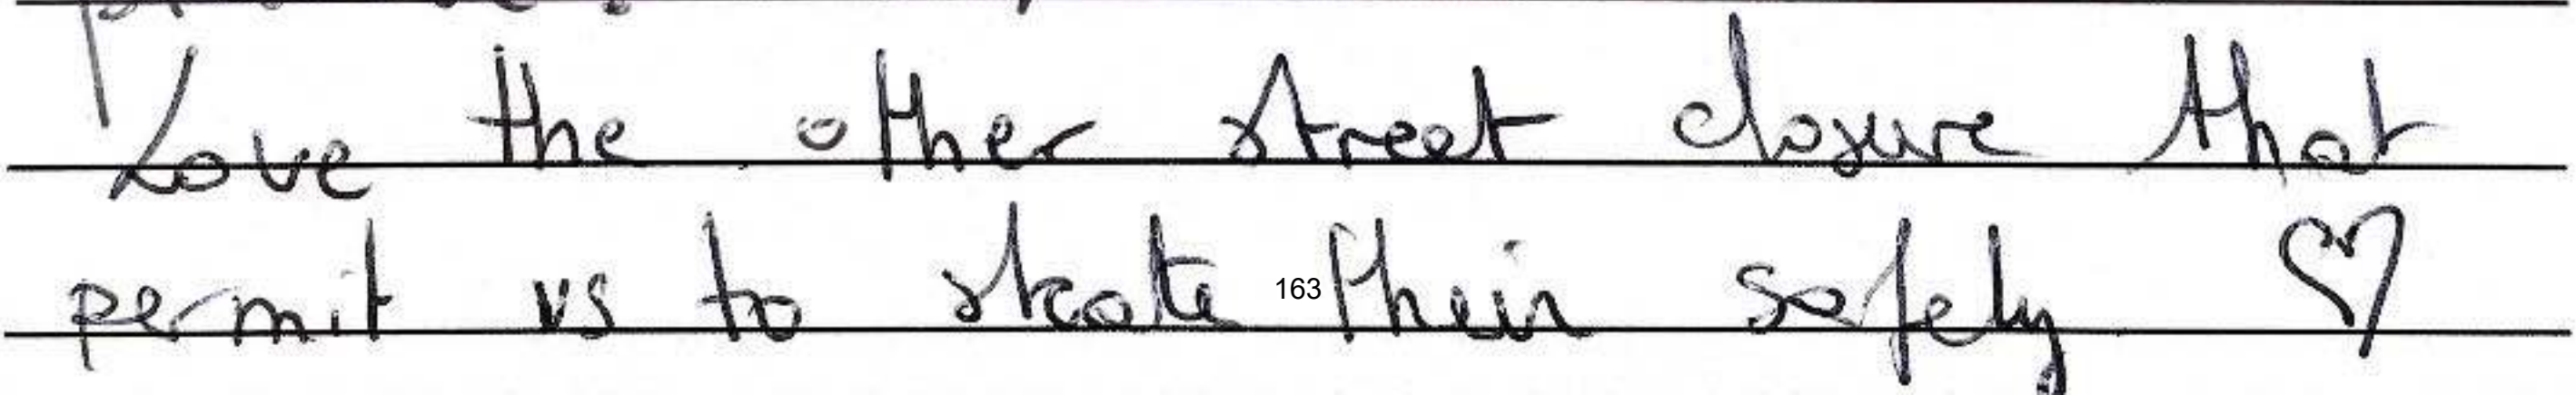 Love the other street closure that
permit us to skate 163 their safely ♡